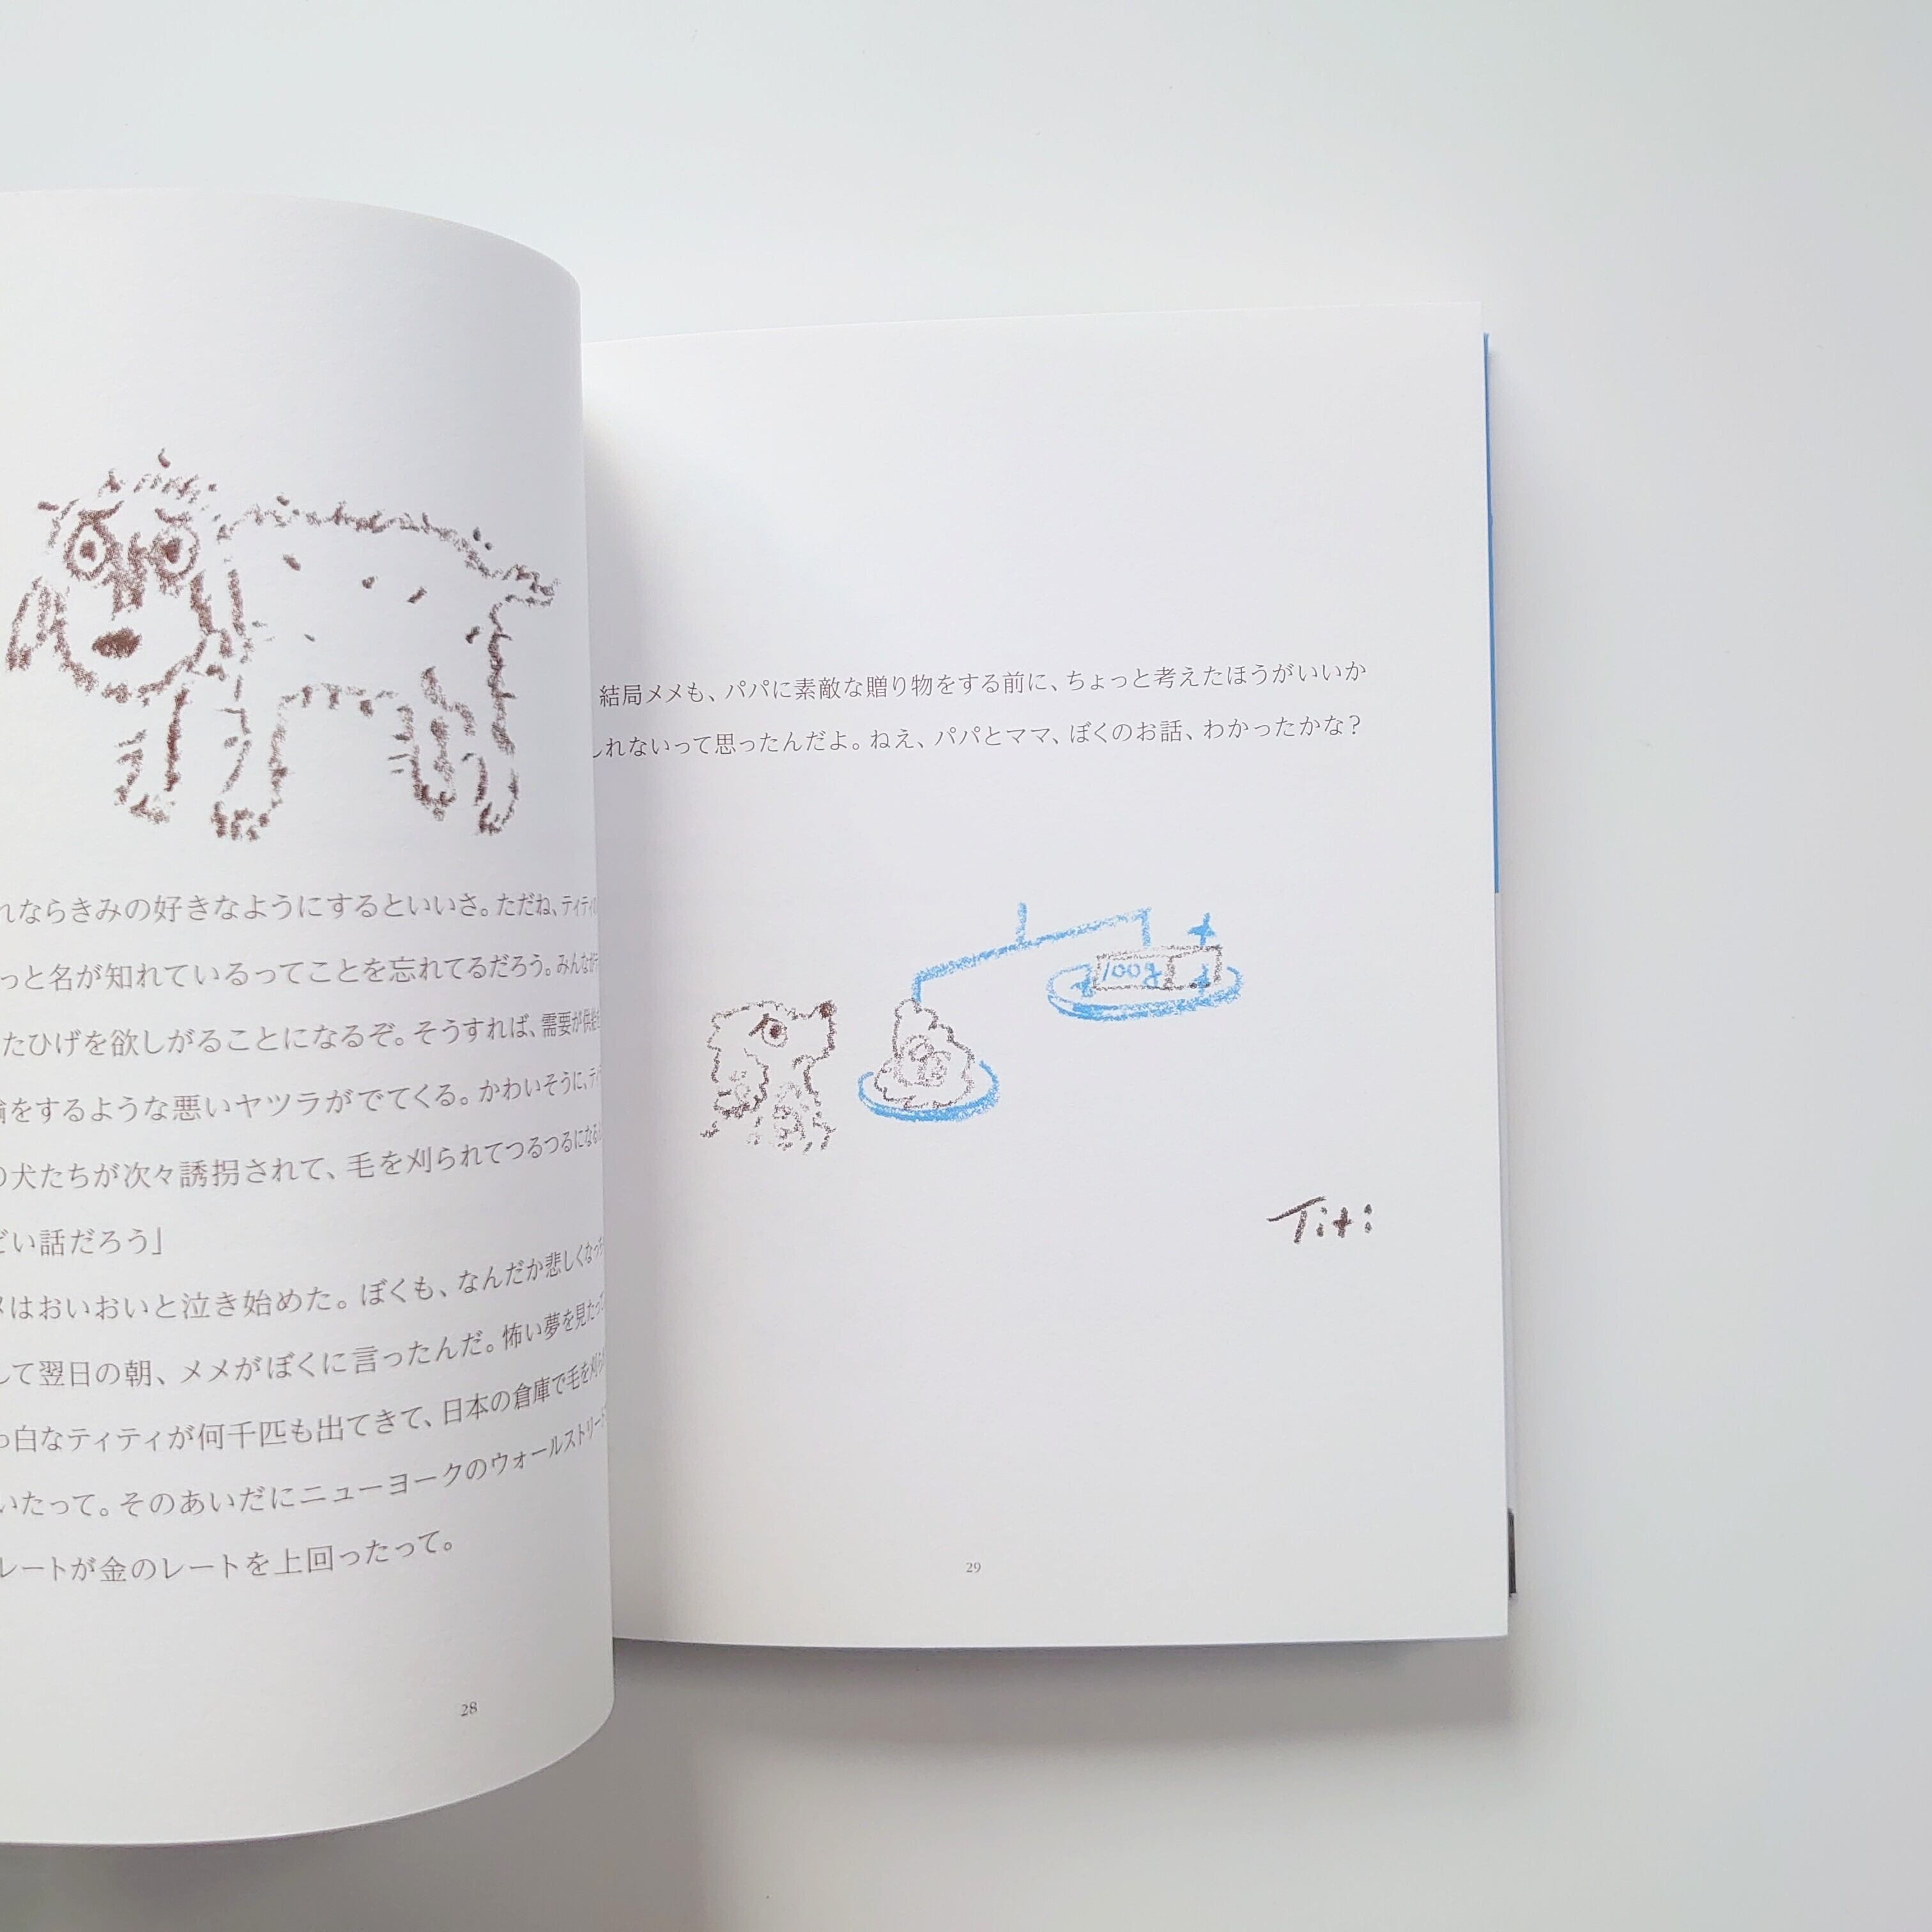 れならきみの好きなようにするといいさ。ただね、ティティの
っと名が知れているってことを忘れてるだろう。みんながテ
たひげを欲しがることになるぞ。そうすれば、需要が供給
をするような悪いヤツラがでてくる。かわいそうに、ティ
の犬たちが次々誘拐されて、毛を刈られてつるつるになる
どい話だろう」
メはおいおいと泣き始めた。ぼくも、なんだか悲しくなっ
して翌日の朝、メメがぼくに言ったんだ。怖い夢を見たっ
っ白なティティが何千匹も出てきて、日本の倉庫で毛を刈ら
いたって。そのあいだにニューヨークのウォールストリート
レートが金のレートを上回ったって。
28
結局メメも、パパに素敵な贈り物をする前に、ちょっと考えたほうがいいか
しれないって思ったんだよ。ねえ、パパとママ、ぼくのお話、わかったかな？
100g
Titi
29